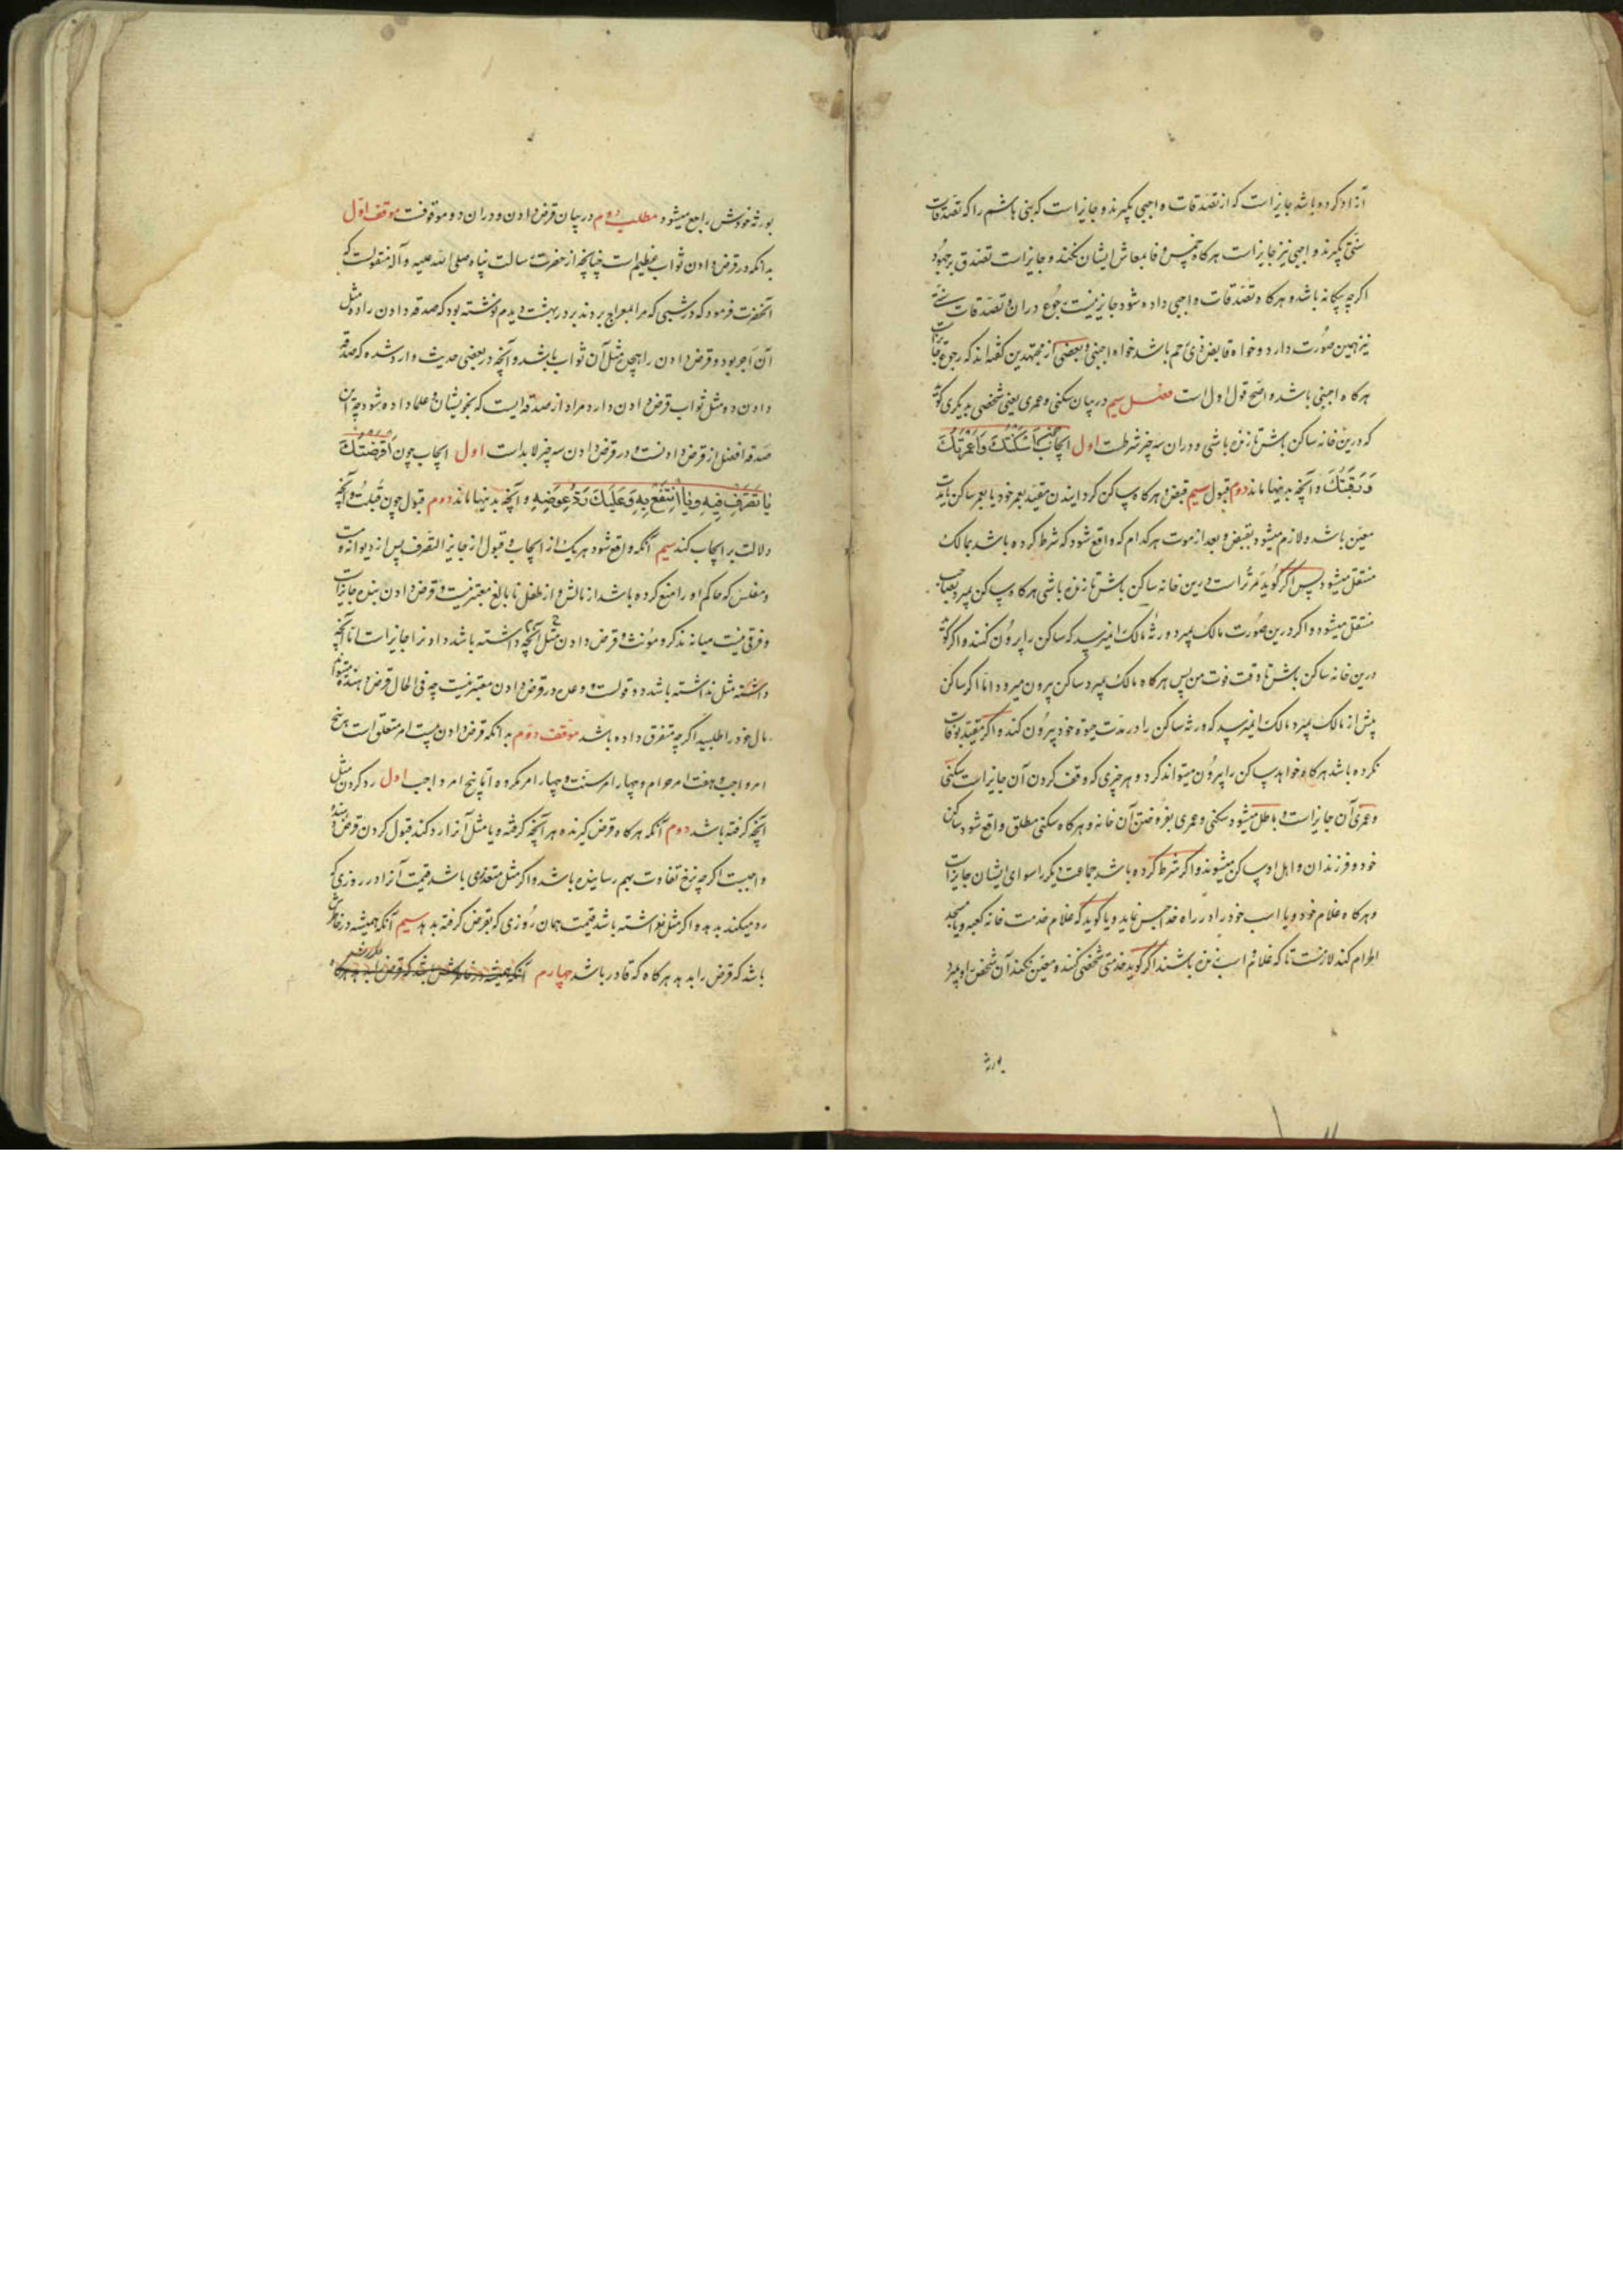 آزاد کرده باشد جایز است که از تصدقات واجبی بگیرند و جایز است که بنی هاشم را که تصدقات
سنتی بگیرند و واجبی نیز جایز است هرکاه خمس وفا بمعاش ایشان نکند و جایز است تصدق بر جهود
اکرچه بیکانه باشد و هرکاه تصدقات واجبی داده شود جایز نیست رجوع دران و تصدقات سنتی
نیز همین صورت دارد و خواه قابض ذی رحم باشد خواه اجنبی و بعضی از مجتهدین کفته اند که رجوع جایز است
هرکاه اجنبی باشد و اصح قول اول است فصل سیم در بیان سکنی و عمری یعنی شخصی بدیکری کوید
که درین خانه ساکن باش تا زنده باشی و دران سه چیز شرطست اول ایجاب چون اَسْکَنْتُکَ وَاَعْمَرْتُکَ
وَرَقَبْتُکَ و آنچه بدینها ماند دوم قبول سیم قبض و هرکاه ساکن کردانیدن مقید بعمر خود یا بعمر ساکن یا مدت
معین باشد و لازم میشود بقبض و بعد از موت هرکدام که واقع شود که شرط کرده باشد بمالک
منتقل میشود پس اکر کوید مر تراست درین خانه ساکن باش تا زنده باشی هرکاه ساکن بمیرد بصاحب
منتقل میشود و اکر درین صورت مالک بمیرد ورثهٔ مالک را نمیرسد که ساکن را بیرون کنند و اکر کوید
درین خانه ساکن باش تا وقت فوت من پس هرکاه مالک بمیرد ساکن بیرون میرود اما اکر ساکن
پیش از مالک بمیرد مالک را نمیرسد که ورثه ساکن را در مدت حیوة خود بیرون کند و اکر مقید بوقت
نکرده باشد هرکاه خواهد ساکن را بیرون میتواند کرد و هر چیزی که وقف کردن آن جایز است سکنی
و عمری آن جایز است و باطل میشود سکنی و عمری بفروختن آن خانه و هرکاه سکنی مطلق واقع شود ساکن
خود و فرزندان و اهل او ساکن میشوند و اکر شرط کرده باشد جماعت دیکر را سوای ایشان جایز است
و هرکاه غلام خود و یا اسب خود را در راه خدا حبس نماید و یا کوید که غلام خدمت خانه کعبه و یا مسجد
الحرام کند لازمست تا که غلام و اسب زنده باشند اکر کوید خدمتی شخصی کند و معین نکند آن شخص او بمیرد
بورثهٔ
بورثه خودش راجع میشود مطلب دوم در بیان قرض دادن و دران دو موقفست موقف اول
بدانکه در قرض دادن ثواب عظیم است چنانچه از حضرت رسالت پناه صلی الله علیه و آله منقولست که
آنحضرت فرمود که در شبی که مرا بمعراج بردند بر در بهشت دیدم نوشته بود که صدقه دادن را ده مثل
آن اجر بود و قرض دادن را هجده مثل آن ثواب باشد و آنچه در بعضی حدیث وارد شده که صدقه
دادن ده مثل ثواب قرض دادن دارد مراد از صدقه ایست که بخویشان و علما داده شود چه این
صدقه افضل از قرض دادنست و در قرض دادن سه چیز لابد است اول ایجاب چون اَقْرَضْتُکَ
یا تَصَرَّفْ فِیهِ وَیا اِنْتَفَعْ بِهِ وَعَلَیْکَ رَدُّ عِوَضِهِ و آنچه بدینها ماند دوم قبول چون قَبِلْتُ و آنچه
دلالت بر ایجاب کند سیم آنکه واقع شود هریک از ایجاب و قبول از جایز التصرف پس از دیوانه و مست
و مفلس که حاکم او را منع کرده باشد از مالش و از طفل نابالغ معتبر نیست و قرض دادن بنده جایز است
و فرقی نیست میانه مذکر و مونث و قرض دادن مثل آنچه داشته باشد داد نرا جایز است اما آنچه
داشته مثل نداشته باشد دو قولست و وعده در قرض دادن معتبر نیست چه فی الحال قرض دهنده میتواند
مال خود را طلبید اکرچه متفرق داده باشد موقف دوم بدانکه قرض دادن بیست امر متعلق است پنج
امر واجب و هفت امر حرام و چهار امر سنت و چهار امر مکروه اما پنج امر واجب اول رد کردن مثل
آنچه کرفته باشد دوم آنکه هرکاه قرض کیرنده هر آنچه کرفته و یا مثل آنرا رد کند قبول کردن قرض دهنده
واجبست اکرچه نرخ تفاوت بهم رسانیده باشد و اکر مثل متعذر باشد قیمت آنرا در روزی که
رد میکند بدهد و اکر مثل نداشته باشد قیمت همان روزی که بقرض کرفته بدهد سیم آنکه همیشه در خاطرش
باشد که قرض را بدهد هرکاه که قادر باشد چهارم آنکه همیشه در خاطرش باشد که قرض را بدهد هرکاه